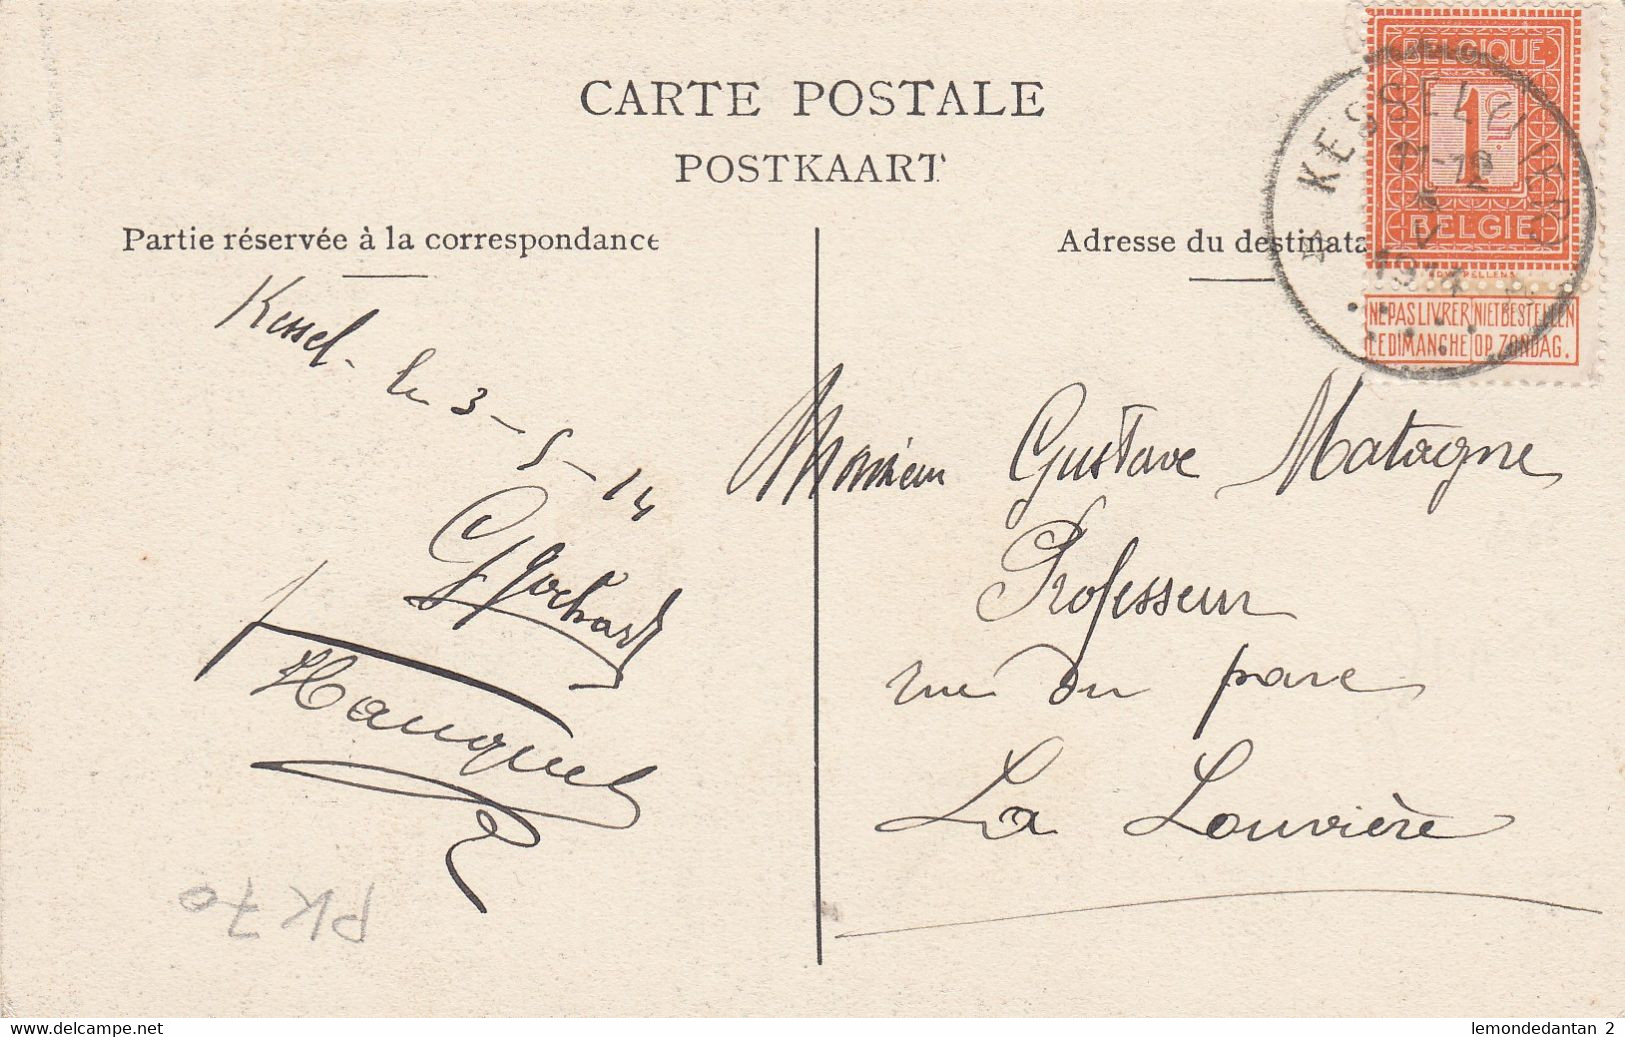 CARTE POSTALE
POSTKAART
Partie réservée à la correspondance
Adresse du destinata
BELGIQUE
1c
BELGIË
NE PAS LIVRER NIET BESTELLEN
LE DIMANCHE OP ZONDAG.
KESSEL-
11-12
1914
Kessel- le 3-5-14
G Gochard
Hauquet
Monsieur Gustave Matagne
Professeur
rue du parc
La Louvière
PK 70
www.delcampe.net
lemondedantan 2